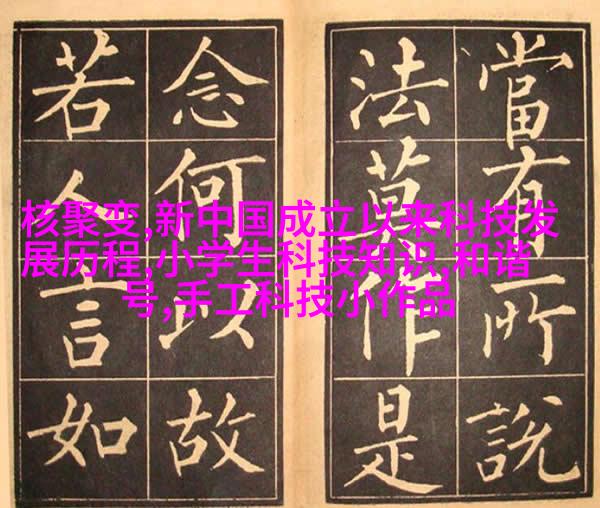 當有所說
法莫作是
念何以故
若人言如
核聚变,新中国成立以来科技发
展历程,小学生科技知识,和谐
号,手工科技小作品